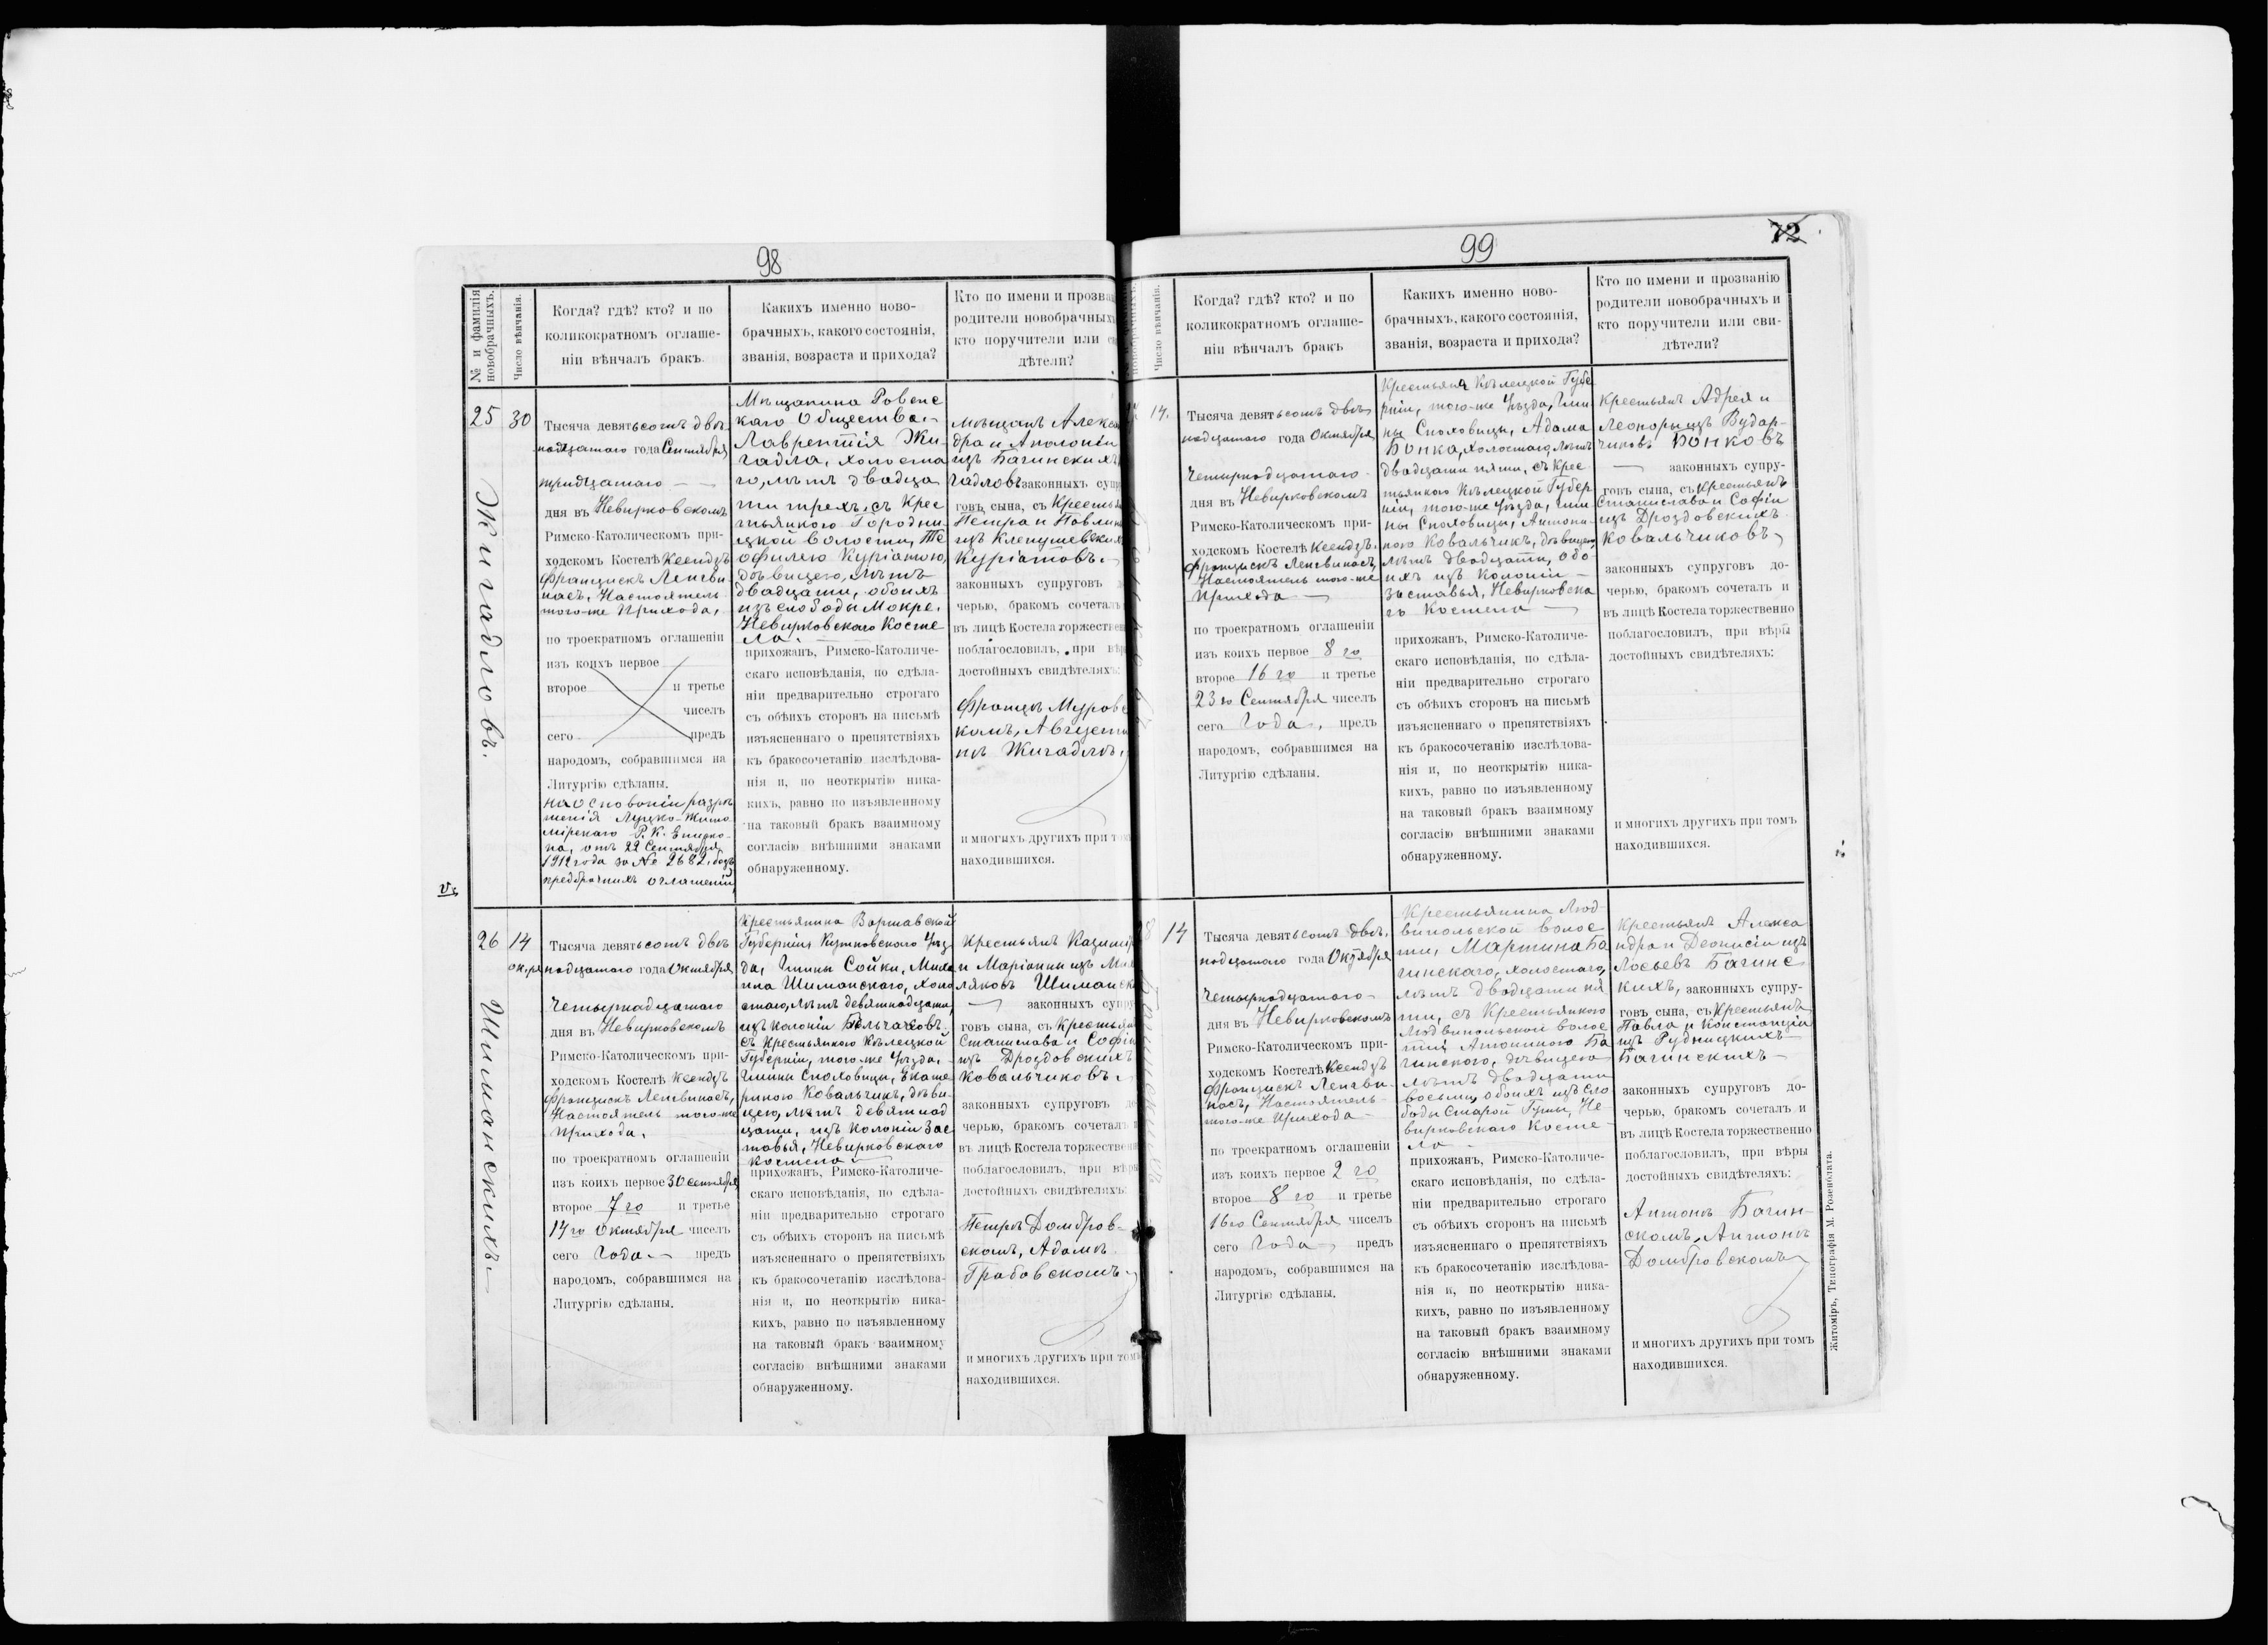 98
№ и фамилія новобрачныхъ.
Число вѣнчанія.
Когда? гдѣ? кто? и по
коликократномъ оглаше-
ніи вѣнчалъ бракъ.
Какихъ именно ново-
брачныхъ, какого состоянія,
званія, возраста и прихода?
Кто по имени и прозва
родители новобрачных
кто поручители или
дѣтели?
25
30
Жигадловъ.
Тысяча девятьсотъ двѣ
надцатаго года Сентября
тридцатаго
дня въ Невирковскомъ
Римско-Католическомъ при-
ходскомъ Костелѣ Ксендзъ
Францискъ Ленгви
насъ, Настоятель
того-же Прихода,
по троекратномъ оглашеніи
изъ коихъ первое
второе и третье
чиселъ
сего предъ
народомъ, собравшимся на
Литургію сдѣланы.
на основаніи разрѣ
шенія Луцко-Жито
мірскаго Р. К. Еписко-
па, отъ 22 Сентября
1912 года за № 2682, безъ
предбрачныхъ оглашеній
Мѣщанина Ровенс
каго Общества
Лаврентія Жи-
гадла, холоста
го, лѣтъ двадца
ти трехъ, съ Крес
тьянкою Городни
цкой волости, Те
офилею Куріатою,
дѣвицею, лѣтъ
двадцати, обоихъ
изъ слободы Мокре,
Невирковскаго Косте
ла.
прихожанъ, Римско-Католиче-
скаго исповѣданія, по сдѣла-
ніи предварительно строгаго
съ обѣихъ сторонъ на письмѣ
изъясненнаго о препятствіяхъ
къ бракосочетанію изслѣдова-
нія и, по неоткрытію ника-
кихъ, равно по изъявленному
на таковый бракъ взаимному
согласію внѣшними знаками
обнаруженному.
Мѣщанъ Алекса
дра и Аполоніи
изъ Багинскихъ
гадловъ законныхъ супр
говъ сына, съ Крестья
Петра и Павлины
изъ Клепушевских
Куріатовъ.
законныхъ супруговъ
черью, бракомъ сочеталъ
въ лицѣ Костела торжествен
поблагословилъ, при вѣр
достойныхъ свидѣтеляхъ:
Францѣ Муровс
комъ, Августи
нѣ Жигадлѣ,
и многихъ другихъ при том
находившихся.
26
14
Окт-ря
Шиманскихъ
Тысяча девятьсотъ двѣ
надцатаго года Октября
Четырнадцатаго
дня въ Невирковскомъ
Римско-Католическомъ при-
ходскомъ Костелѣ Ксендзъ
Францискъ Ленгвинасъ,
Настоятель того-же
Прихода,
по троекратномъ оглашеніи
изъ коихъ первое 30 сентября
второе 7го и третье
14го Октября чиселъ
сего Года предъ
народомъ, собравшимся на
Литургію сдѣланы.
Крестьянина Варшавской
Губерніи Кутновского Уѣз
да, Гмины Сойки, Миха
ила Шиманскаго, холо
стаго, лѣтъ девятнадцати,
изъ колоніи
съ Крестьянкою Кѣлецкой
Губерніи, того-же Уѣзда,
Гмины Снoховицы, Екате
риною Ковальчикъ, дѣви-
цею, лѣтъ девятнад
цати, изъ колоніи Зас
тавья, Невирковскаго
Костела
прихожанъ, Римско-Католиче-
скаго исповѣданія, по сдѣла-
ніи предварительно строгаго
съ обѣихъ сторонъ на письмѣ
изъясненнаго о препятствіяхъ
къ бракосочетанію изслѣдова-
нія и, по неоткрытію ника-
кихъ, равно по изъявленному
на таковый бракъ взаимному
согласію внѣшними знаками
обнаруженному.
Крестьянъ Казимір
и Маріанны изъ
ляковъ Шиманск
законныхъ супру
говъ сына, съ Крестьян
Станислава и Софіи
изъ Дроздовскихъ
Ковальчиковъ
законныхъ супруговъ до
черью, бракомъ сочеталъ и
въ лицѣ Костела торжественн
поблагословилъ, при вѣры
достойныхъ свидѣтеляхъ:
Петрѣ Домбров-
скомъ, Адамѣ
Грабовскомъ
и многихъ другихъ при томъ
находившихся.
99
72
Число вѣнчанія.
Когда? гдѣ? кто? и по
коликократномъ оглаше-
ніи вѣнчалъ бракъ
Какихъ именно ново-
брачныхъ, какого состоянія,
званія, возраста и прихода?
Кто по имени и прозванію
родители новобрачныхъ и
кто поручители или сви-
дѣтели?
14.
Тысяча девятьсотъ двѣ
надцатаго года Октября
Четырнадцатаго
дня въ Невирковскомъ
Римско-Католическомъ при-
ходскомъ Костелѣ Ксендзъ
Францискъ Ленгвинасъ,
Настоятель того-же
Прихода
по троекратномъ оглашеніи
изъ коихъ первое 8го
второе 16го и третье
23го Сентября чиселъ
сего Года, предъ
народомъ, собравшимся на
Литургію сдѣланы.
Крестьяна Кѣлецкой Губе
рніи, того-же Уѣзда, Гми
ны Сноховицы, Адама
Бонка, холостаго, лѣтъ
двадцати пяти, съ Крес
тьянкою Кѣлецкой Губер
ніи, того-же Уѣзда, Гми
ны Сноховицы, Антони-
ною Ковальчикъ, дѣвицею,
лѣтъ двадцати, обо-
ихъ изъ Колоніи
Заставья, Невирковска
го Костела
прихожанъ, Римско-Католиче-
скаго исповѣданія, по сдѣла-
ніи предварительно строгаго
съ обѣихъ сторонъ на письмѣ
изъясненнаго о препятствіяхъ
къ бракосочетанію изслѣдова-
нія и, по неоткрытію ника-
кихъ, равно по изъявленному
на таковый бракъ взаимному
согласію внѣшними знаками
обнаруженному.
Крестьянъ Адрея и
Леоноры изъ Вудар-
чиковъ Бонковъ
законныхъ супру-
говъ сына, съ Крестьянъ
Станислава и Софіи
изъ Дроздовскихъ
Ковальчиковъ
законныхъ супруговъ до-
черью, бракомъ сочеталъ и
въ лицѣ Костела торжественно
поблагословилъ, при вѣры
достойныхъ свидѣтеляхъ:
и многихъ другихъ при томъ
находившихся.
14
Тысяча девятьсотъ двѣ,
надцатаго года Октября
Четырнадцатаго
дня въ Невирковскомъ
Римско-Католическомъ при-
ходскомъ Костелѣ Ксендзъ
Францискъ Ленгви-
насъ, Настоятель
того-же Прихода
по троекратномъ оглашеніи
изъ коихъ первое 2го
второе 8го и третье
16го Сентября чиселъ
сего Года предъ
народомъ, собравшимся на
Литургію сдѣланы.
Крестьянина Люд-
випольской волос
ти, Мартина Ба
гинскаго, холостаго,
лѣтъ двадцати пя
ти, съ Крестьянкою
Людвипольской волос
ти Антониною Ба
гинскою, дѣвицею
лѣтъ двадцати
восьми, обоихъ изъ Сло
боды Старой Гуты, Не-
вирковскаго Косте-
ла
прихожанъ, Римско-Католиче-
скаго исповѣданія, по сдѣла-
ніи предварительно строгаго
съ обѣихъ сторонъ на письмѣ
изъясненнаго о препятствіяхъ
къ бракосочетанію изслѣдова-
нія и, по неоткрытію ника-
кихъ, равно по изъявленному
на таковый бракъ взаимному
согласію внѣшними знаками
обнаруженному.
Крестьянъ Алекса
ндра и Деонисіи изъ
Лосьевъ Багинс
кихъ, законныхъ супру-
говъ сына, съ Крестьянъ
Павла и Констанціи
изъ Рудницкихъ
Багинскихъ
законныхъ супруговъ до-
черью, бракомъ сочеталъ и
въ лицѣ Костела торжественно
поблагословилъ, при вѣры
достойныхъ свидѣтеляхъ:
Антонѣ Багин-
скомъ, Антонѣ
Домбровскомъ
и многихъ другихъ при томъ
находившихся.
Житоміръ, Типографія М. Розенблата.